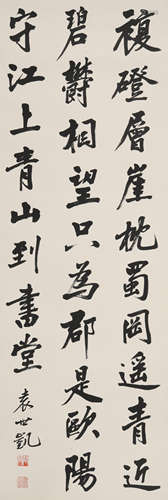 複磴層崖枕蜀岡遙青近
碧欝相望只為郡是歐陽
守江上青山到畫堂
袁世凱